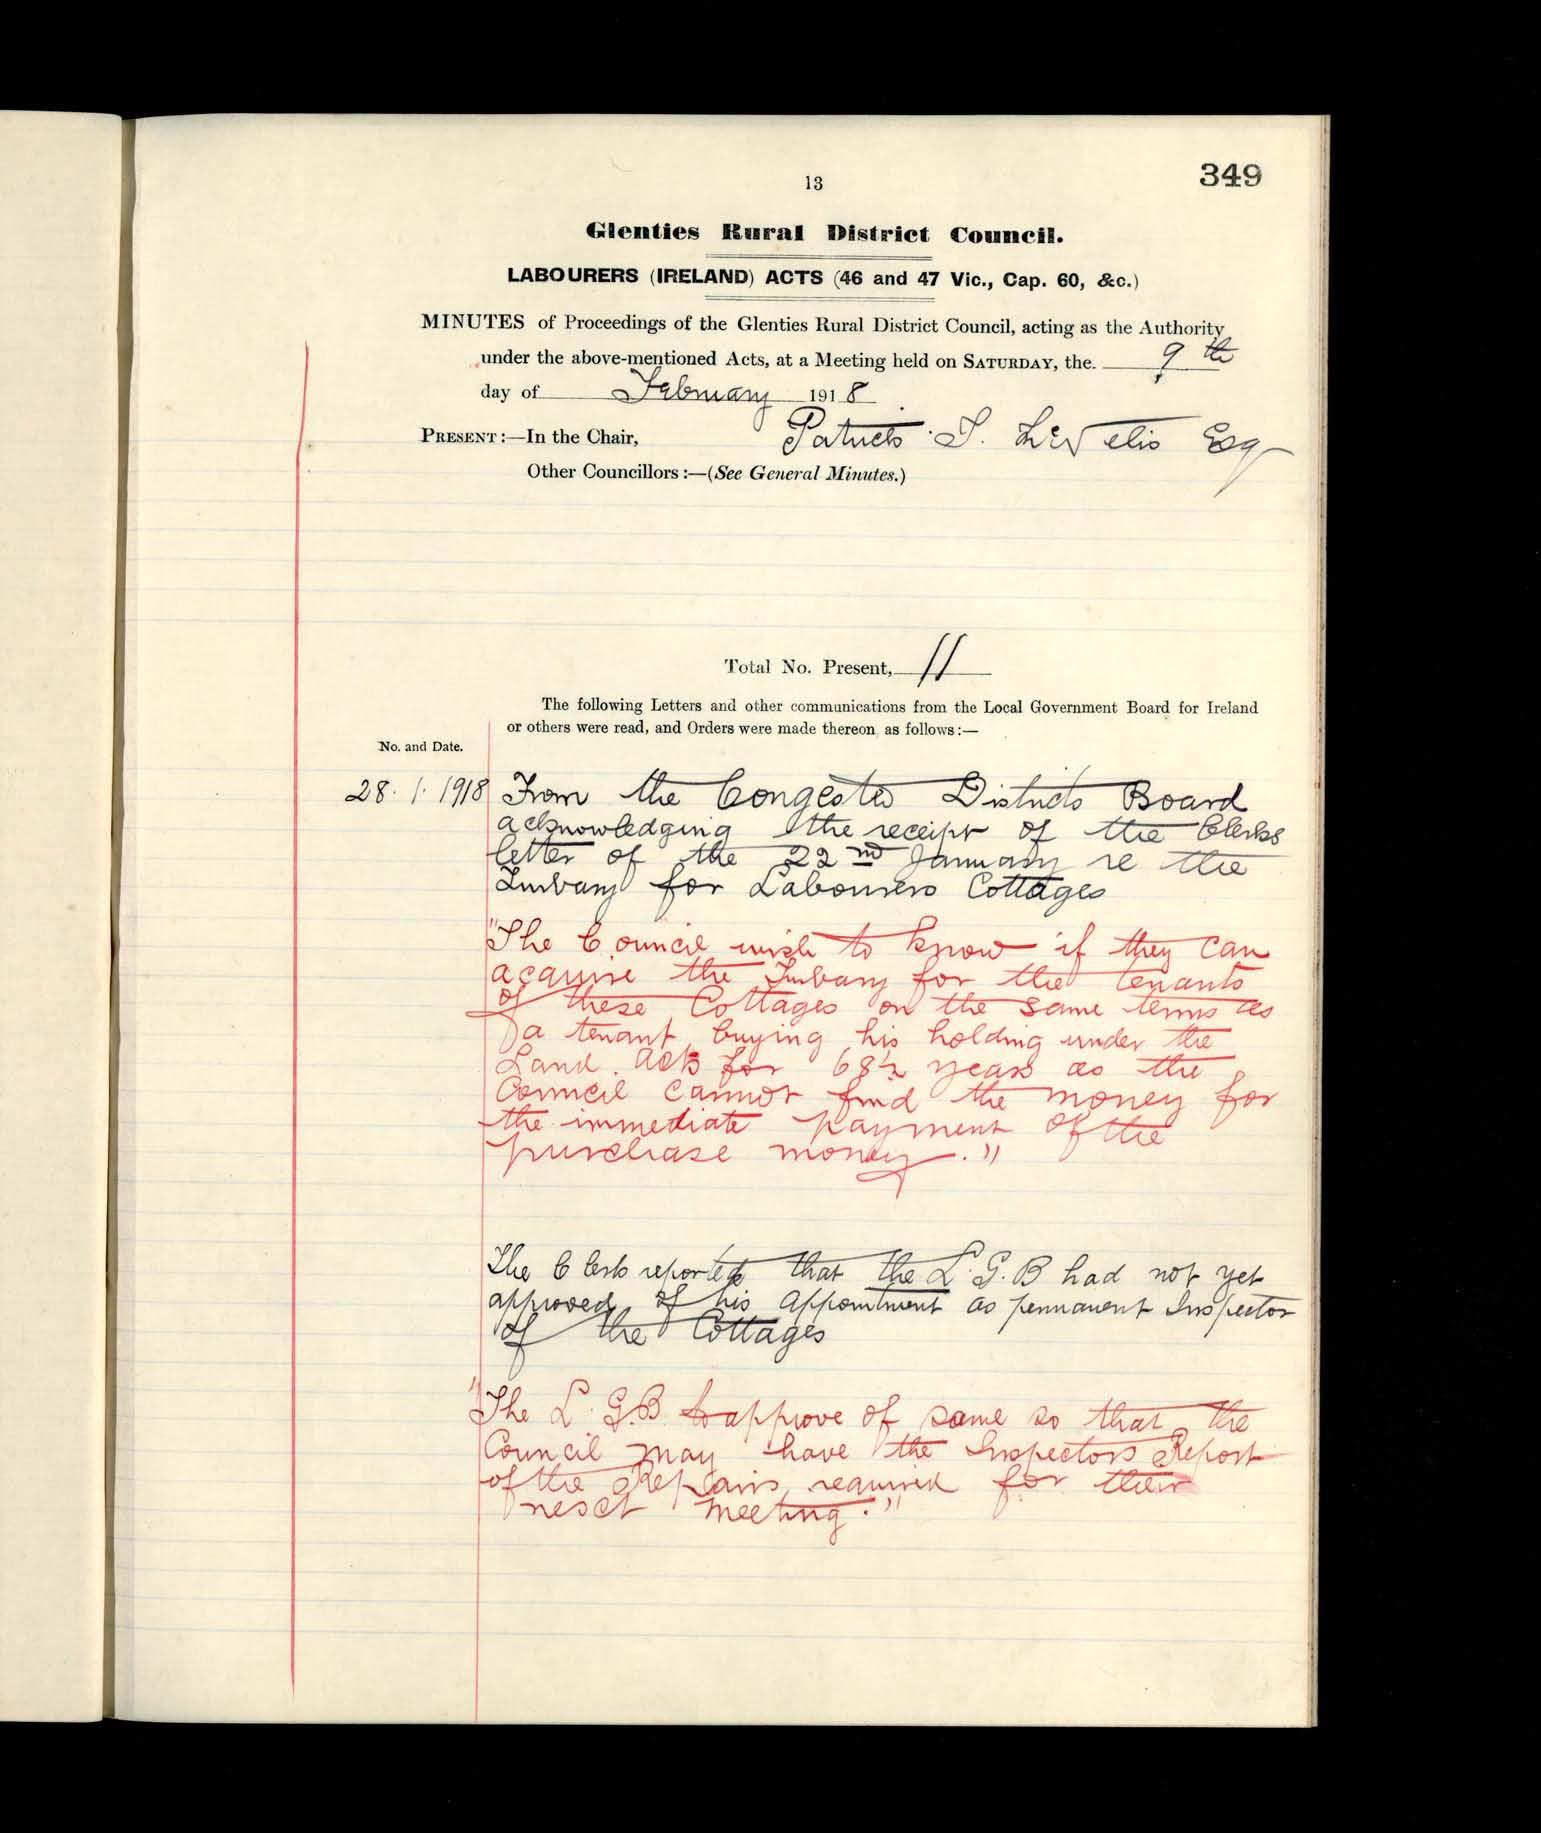 349
13
Glenties Rural District Council.
LABOURERS (IRELAND) ACTS (46 and 47 Vic., Cap. 60, &c.)
MINUTES of Proceedings of the Glenties Rural District Council, acting as the Authority
under the above-mentioned Acts, at a Meeting held on SATURDAY, the 9th
day of February 1918
PRESENT:—In the Chair, Patrick Esq
Other Councillors:—(See General Minutes.)
Total No. Present, 11
The following Letters and other communications from the Local Government Board for Ireland
or others were read, and Orders were made thereon as follows:—
No. and Date.
28. 1. 1918 From the Congested Districts Board
acknowledging the receipt of the Clerks
letter of the 22nd January re the
Turbary for Labourers Cottages
"The Council wish to know if they can
acquire the Turbary for the tenants
of these Cottages on the same terms as
a tenant buying his holding under the
Land Acts for 68½ years as the
Council cannot find the money for
the immediate payment of the
purchase money."
The Clerk reported that the L.G.B had not yet
approved of his appointment as permanent Inspector
of the Cottages
"The L.G.B to approve of same so that the
Council may have the Inspectors Report
of the Repairs required for their
next meeting."